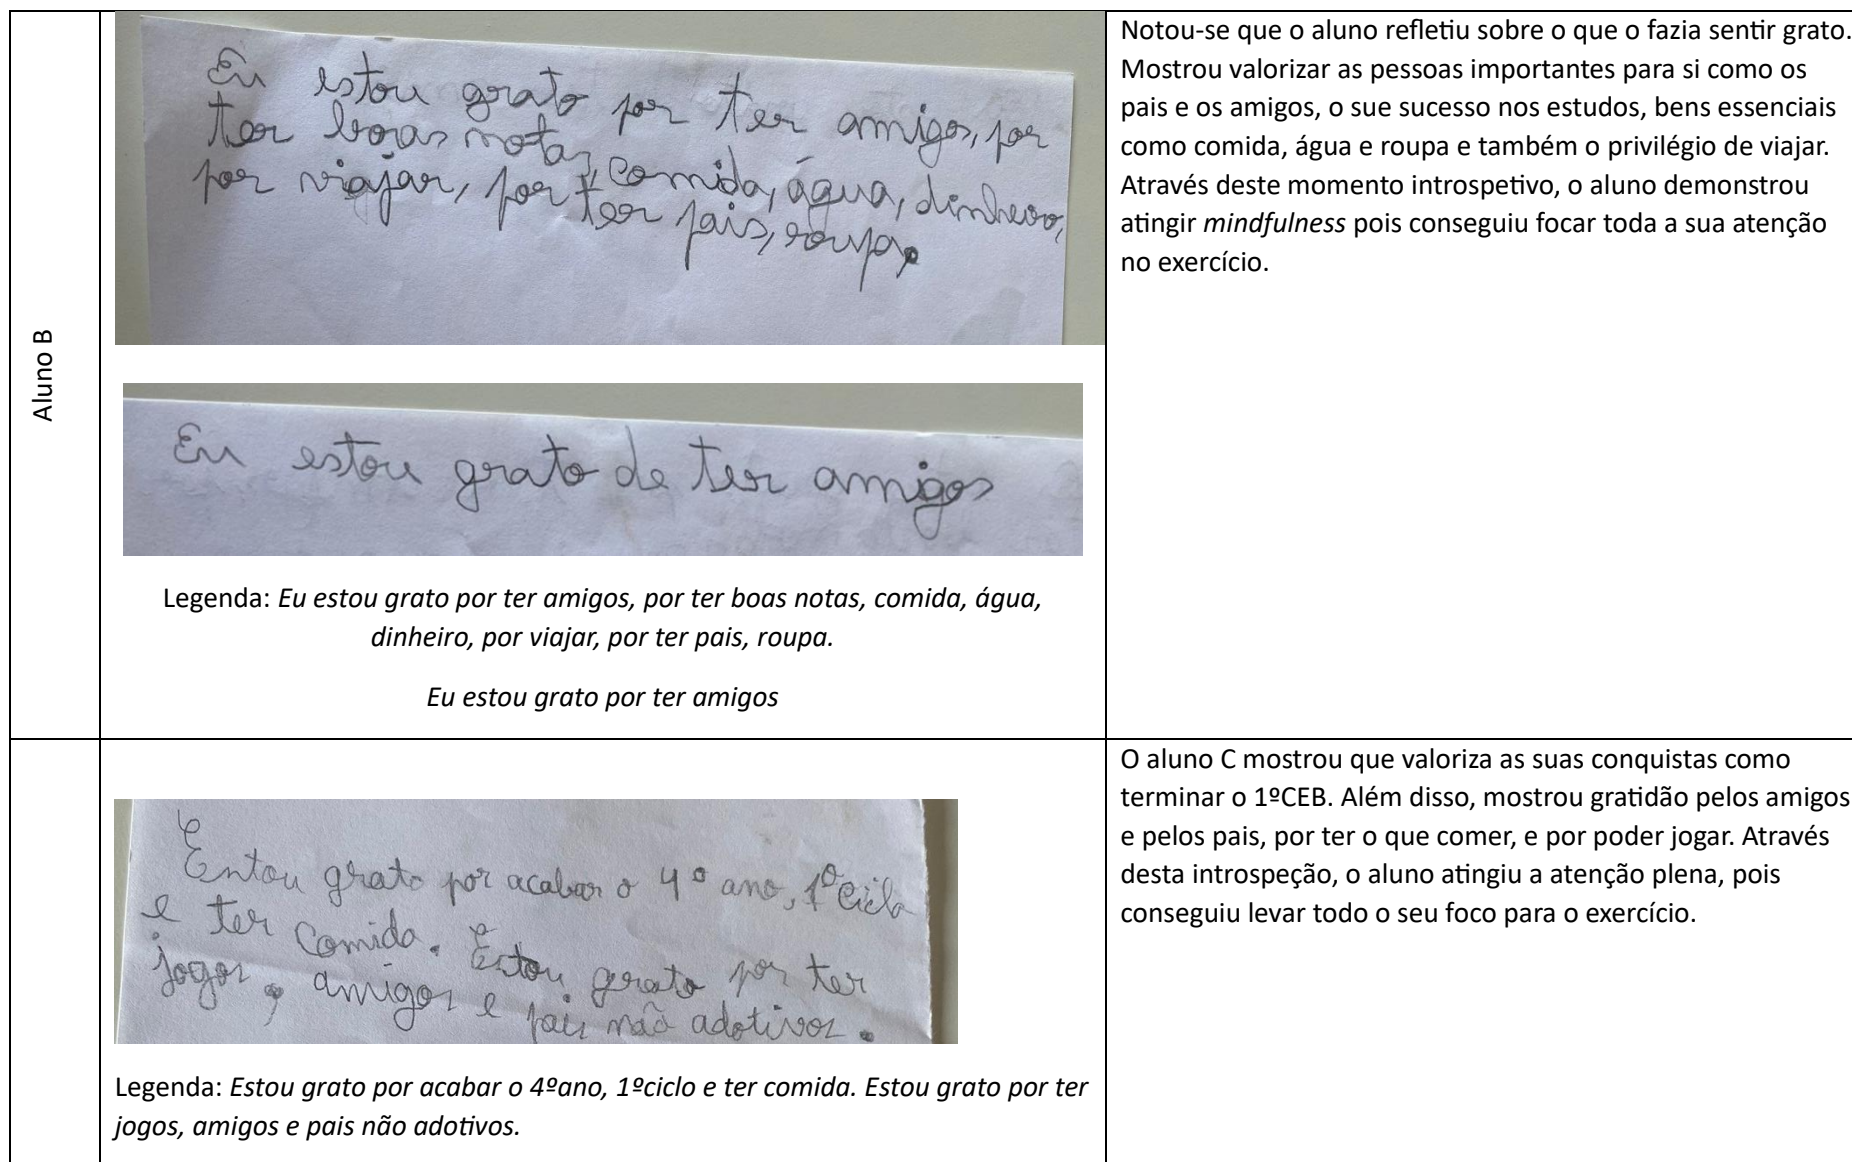 Aluno B
Eu estou grato por ter amigos, por
ter boas notas, comida, água, dinheiro,
por viajar, por ter pais, roupa.
Eu estou grato de ter amigos
Legenda: Eu estou grato por ter amigos, por ter boas notas, comida, água,
dinheiro, por viajar, por ter pais, roupa.
Eu estou grato por ter amigos
Notou-se que o aluno refletiu sobre o que o fazia sentir grato.
Mostrou valorizar as pessoas importantes para si como os
pais e os amigos, o sue sucesso nos estudos, bens essenciais
como comida, água e roupa e também o privilégio de viajar.
Através deste momento introspetivo, o aluno demonstrou
atingir mindfulness pois conseguiu focar toda a sua atenção
no exercício.
Estou grato por acabar o 4º ano, 1º Ciclo
e ter Comida. Estou grato por ter
jogos, amigos e pais não adotivos.
Legenda: Estou grato por acabar o 4ºano, 1ºciclo e ter comida. Estou grato por ter
jogos, amigos e pais não adotivos.
O aluno C mostrou que valoriza as suas conquistas como
terminar o 1ºCEB. Além disso, mostrou gratidão pelos amigos
e pelos pais, por ter o que comer, e por poder jogar. Através
desta introspeção, o aluno atingiu a atenção plena, pois
conseguiu levar todo o seu foco para o exercício.